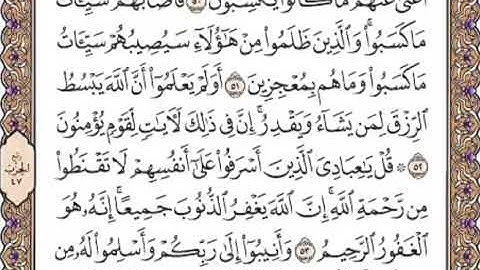 أَغْنَىٰ عَنْهُم مَّا كَانُوا۟ يَكْسِبُونَ ٥٠ فَأَصَابَهُمْ سَيِّـَٔاتُ
مَا كَسَبُوا۟ۚ وَٱلَّذِينَ ظَلَمُوا۟ مِنْ هَـٰٓؤُلَآءِ سَيُصِيبُهُمْ سَيِّـَٔاتُ
مَا كَسَبُوا۟ وَمَا هُم بِمُعْجِزِينَ ٥١ أَوَلَمْ يَعْلَمُوٓا۟ أَنَّ ٱللَّهَ يَبْسُطُ
ٱلرِّزْقَ لِمَن يَشَآءُ وَيَقْدِرُۚ إِنَّ فِى ذَٰلِكَ لَـَٔايَـٰتٍ لِّقَوْمٍ يُؤْمِنُونَ
٥٢ ۞ قُلْ يَـٰعِبَادِىَ ٱلَّذِينَ أَسْرَفُوا۟ عَلَىٰٓ أَنفُسِهِمْ لَا تَقْنَطُوا۟
مِن رَّحْمَةِ ٱللَّهِۚ إِنَّ ٱللَّهَ يَغْفِرُ ٱلذُّنُوبَ جَمِيعًاۚ إِنَّهُۥ هُوَ
ٱلْغَفُورُ ٱلرَّحِيمُ ٥٣ وَأَنِيبُوٓا۟ إِلَىٰ رَبِّكُمْ وَأَسْلِمُوا۟ لَهُۥ مِن
الحزب
٤٧